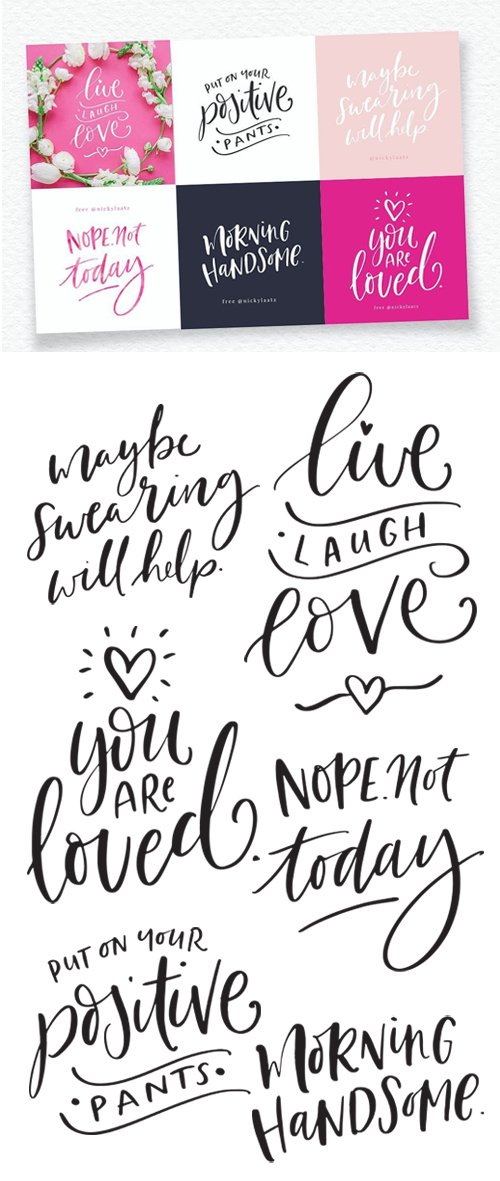 live
LAUGH
love
PUT ON YOUR
positive
PANTS
maybe
swearing
will help
@nickylaatz
free @nickylaatz
NOPE. Not
today
MORNING
HANDSOME.
free @nickylaatz
you
ARe
loved.
free @nickylaatz
maybe
swearing
will help.
live
LAUGH
love
you
ARe
loved.
NOPE. Not
today
PUT ON YOUR
positive
PANTS
MORNING
HANDSOME.